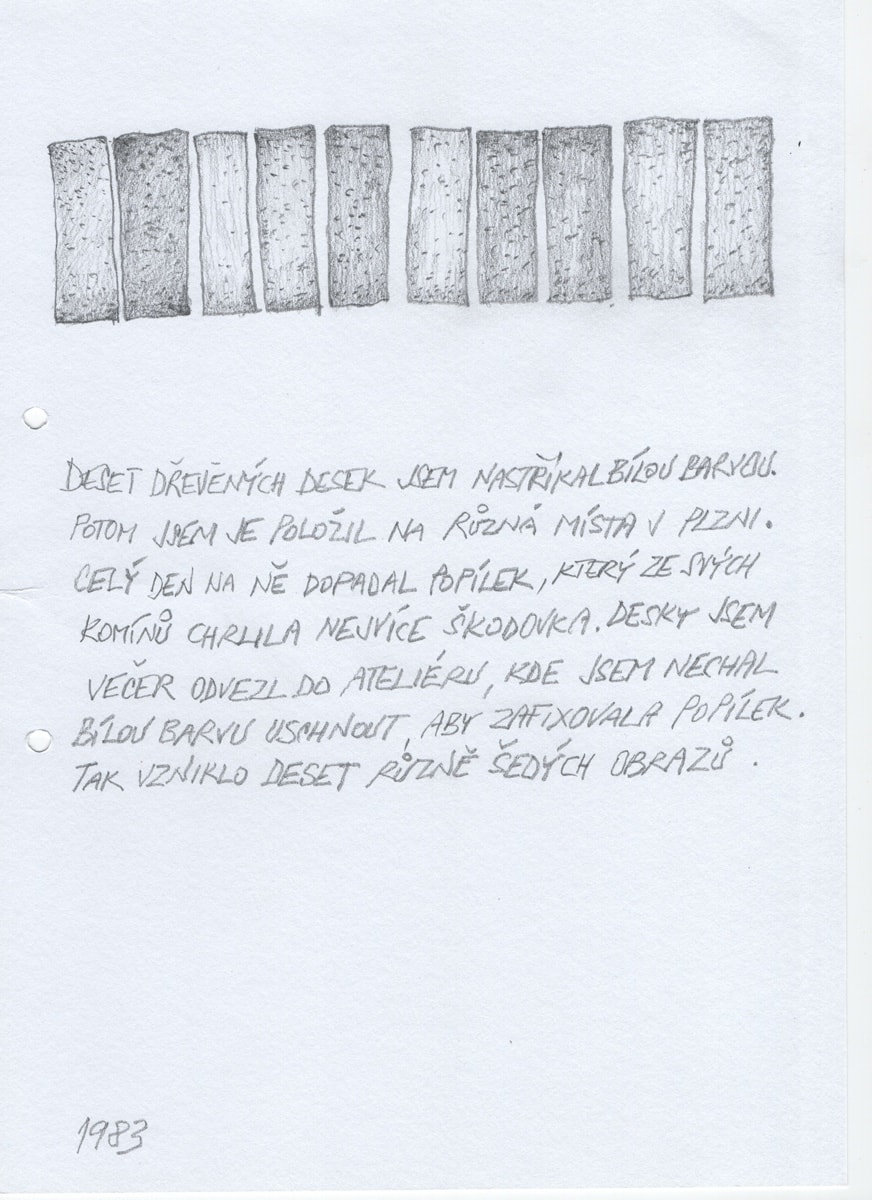 DESET DŘEVĚNÝCH DESEK JSEM NASTŘÍKAL BÍLOU BARVOU.
POTOM JSEM JE POLOŽIL NA RŮZNÁ MÍSTA V PLZNI.
CELÝ DEN NA NĚ DOPADAL POPÍLEK, KTERÝ ZE SVÝCH
KOMÍNŮ CHRLILA NEJVÍCE ŠKODOVKA. DESKY JSEM
VEČER ODVEZL DO ATELIÉRU, KDE JSEM NECHAL
BÍLOU BARVU USCHNOUT, ABY ZAFIXOVALA POPÍLEK.
TAK VZNIKLO DESET RŮZNĚ ŠEDÝCH OBRAZŮ.
1983